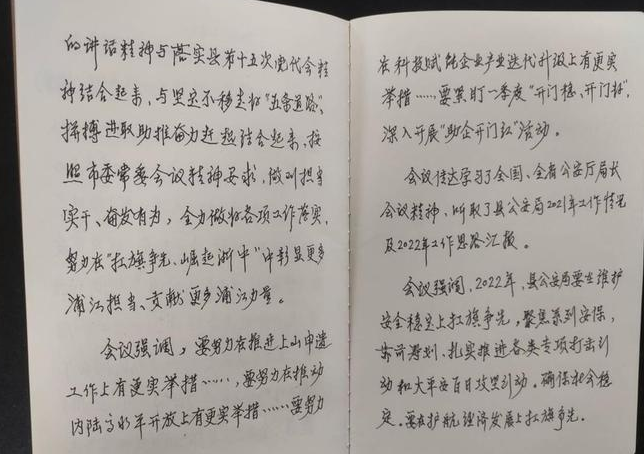 的讲话精神与落实县第十五次党代会精
神结合起来，与坚定不移走好“五条道路”、
拼搏进取助推奋力赶超结合起来，按
照市委常委会议精神要求，做到担当
实干、奋发有为，全力做好各项工作落实，
努力在“扛旗争先、崛起浙中”中彰显更多
浦江担当、贡献更多浦江力量。
会议强调，要努力在推进上山申遗
工作上有更实举措……，要努力在推动
内陆高水平开放上有更实举措……要努力
在科技赋能企业产业迭代升级上有更实
举措……要紧盯一季度“开门稳、开门好”，
深入开展“助企开门红”活动。
会议传达学习了全国、全省公安厅局长
会议精神，听取了县公安局2021年工作情况
及2022年工作思路汇报。
会议强调，2022年，县公安局要在维护
安全稳定上扛旗争先，聚焦系列安保，
筹划、扎实推进各类专项打击行
动和大平安百日攻坚行动。确保社会稳
定。要在护航经济发展上扛旗争先。